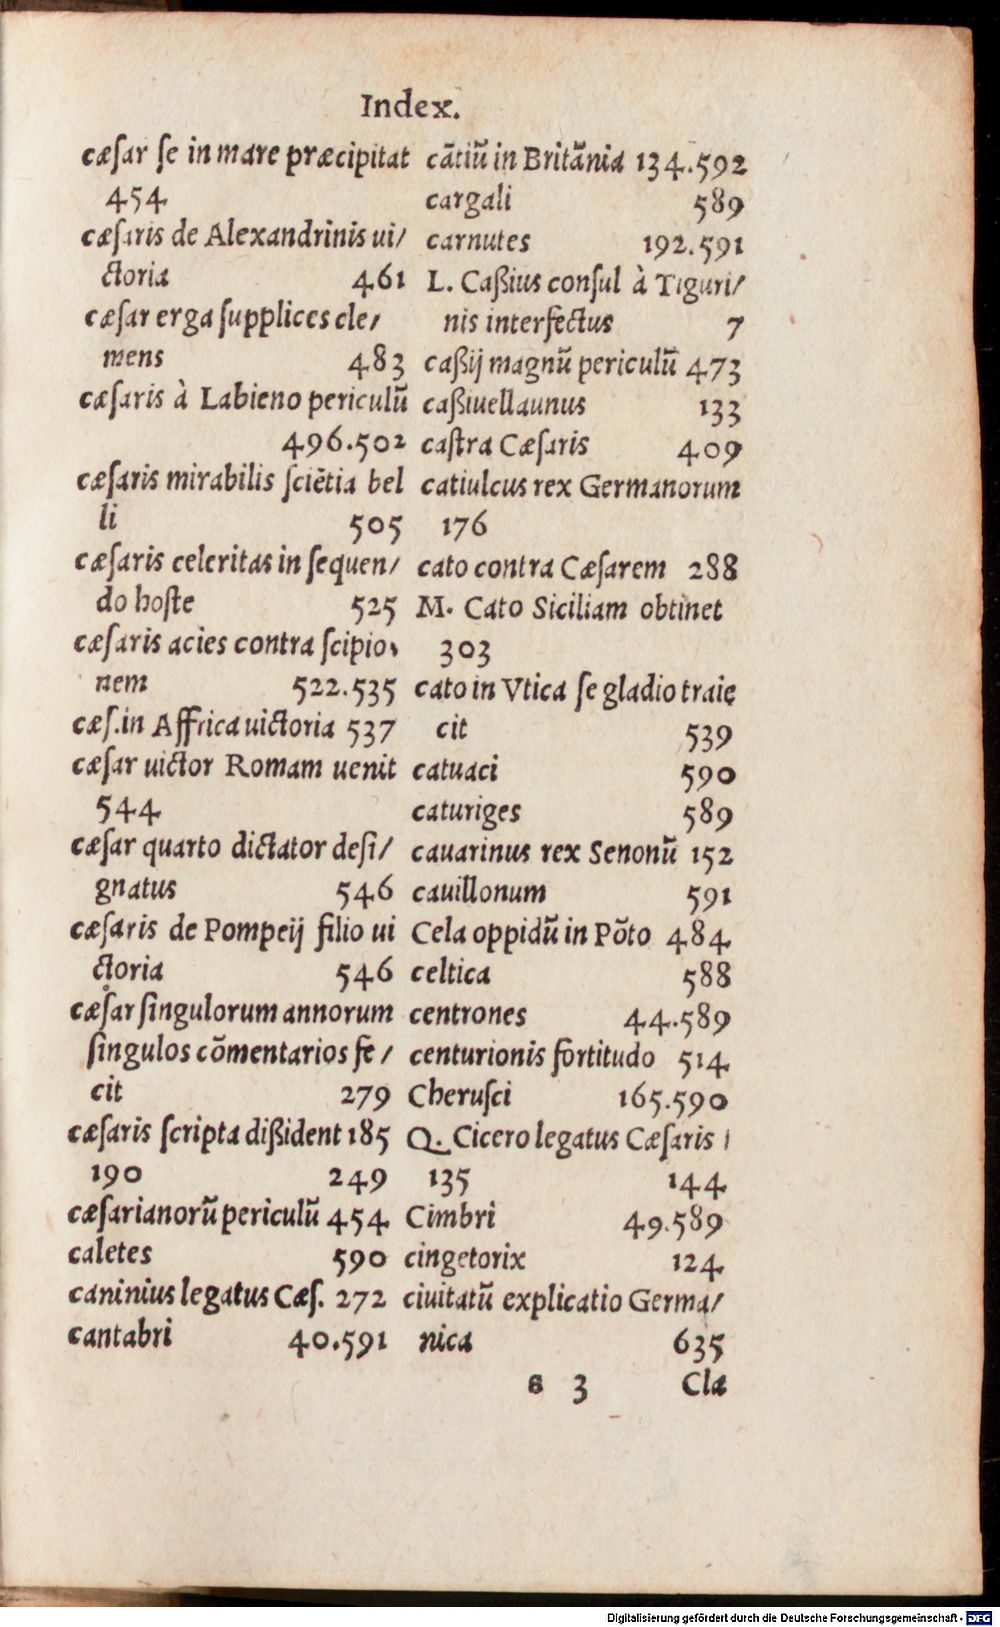 Index.
cæſar ſe in mare præcipitat
454
cæſaris de Alexandrinis ui/
ctoria 461
cæſar erga ſupplices cle/
mens 483
cæſaris à Labieno periculū
496.502
cæſaris mirabilis ſciētia bel
li 505
cæſaris celeritas in ſequen/
do hoſte 525
cæſaris acies contra ſcipio/
nem 522.535
cæſ.in Affrica uictoria 537
cæſar uictor Romam uenit
544
cæſar quarto dictator deſi/
gnatus 546
cæſaris de Pompeij filio ui
ctoria 546
cæſar ſingulorum annorum
ſingulos cōmentarios fe/
cit 279
cæſaris ſcripta dißident 185
190 249
cæſarianorū periculū 454
caletes 590
caninius legatus Cæſ. 272
cantabri 40.591
cātiū in Britānia 134.592
cargali 589
carnutes 192.591
L. Caßius conſul à Tiguri/
nis interfectus 7
caßij magnū periculū 473
caßiuellaunus 133
caſtra Cæſaris 409
catiulcus rex Germanorum
176
cato contra Cæſarem 288
M. Cato Siciliam obtinet
303
cato in Vtica ſe gladio traie
cit 539
catuaci 590
caturiges 589
cauarinus rex Senonū 152
cauillonum 591
Cela oppidū in Pōto 484
celtica 588
centrones 44.589
centurionis fortitudo 514
Cheruſci 165.590
Q. Cicero legatus Cæſaris
135 144
Cimbri 49.589
cingetorix 124
ciuitatū explicatio Germa/
nica 635
6 3 Cla
Digitalisierung gefördert durch die Deutsche Forschungsgemeinschaft - DFG